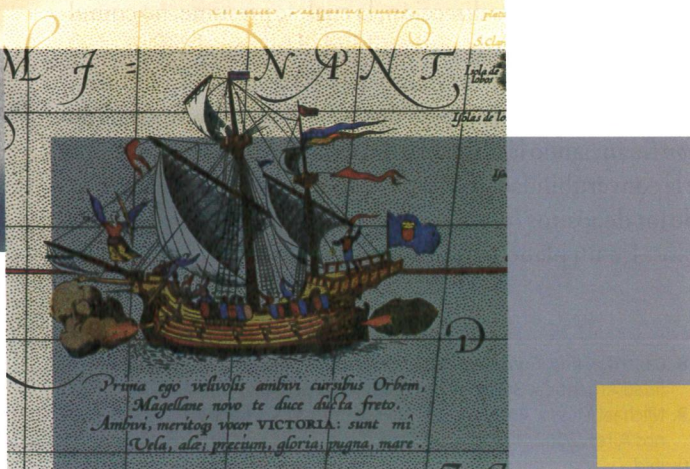 M I = N A N T
Isola de
lobos
Isolas de lo
D
Prima ego velivolis ambivi cursibus Orbem,
Magellane novo te duce ducta freto.
Ambivi, meritoq̃ vocor VICTORIA: sunt mî
Vela, alæ; precium, gloria; pugna, mare.